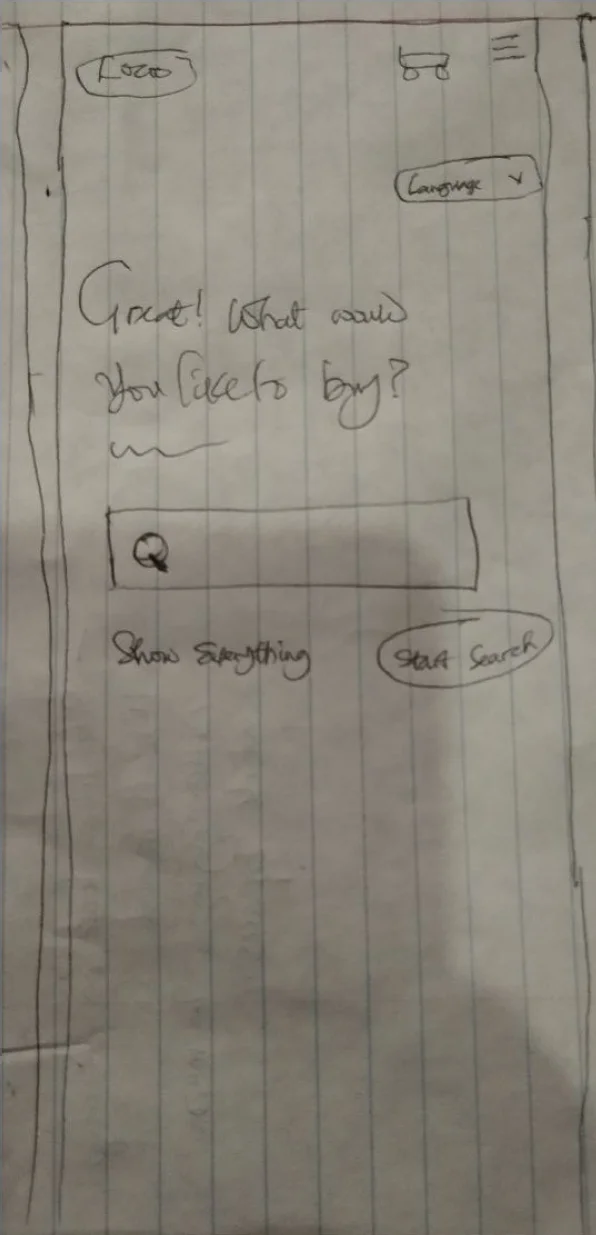 LOGO
Language
Great! What would
you like to buy?
Show Everything
Start Search